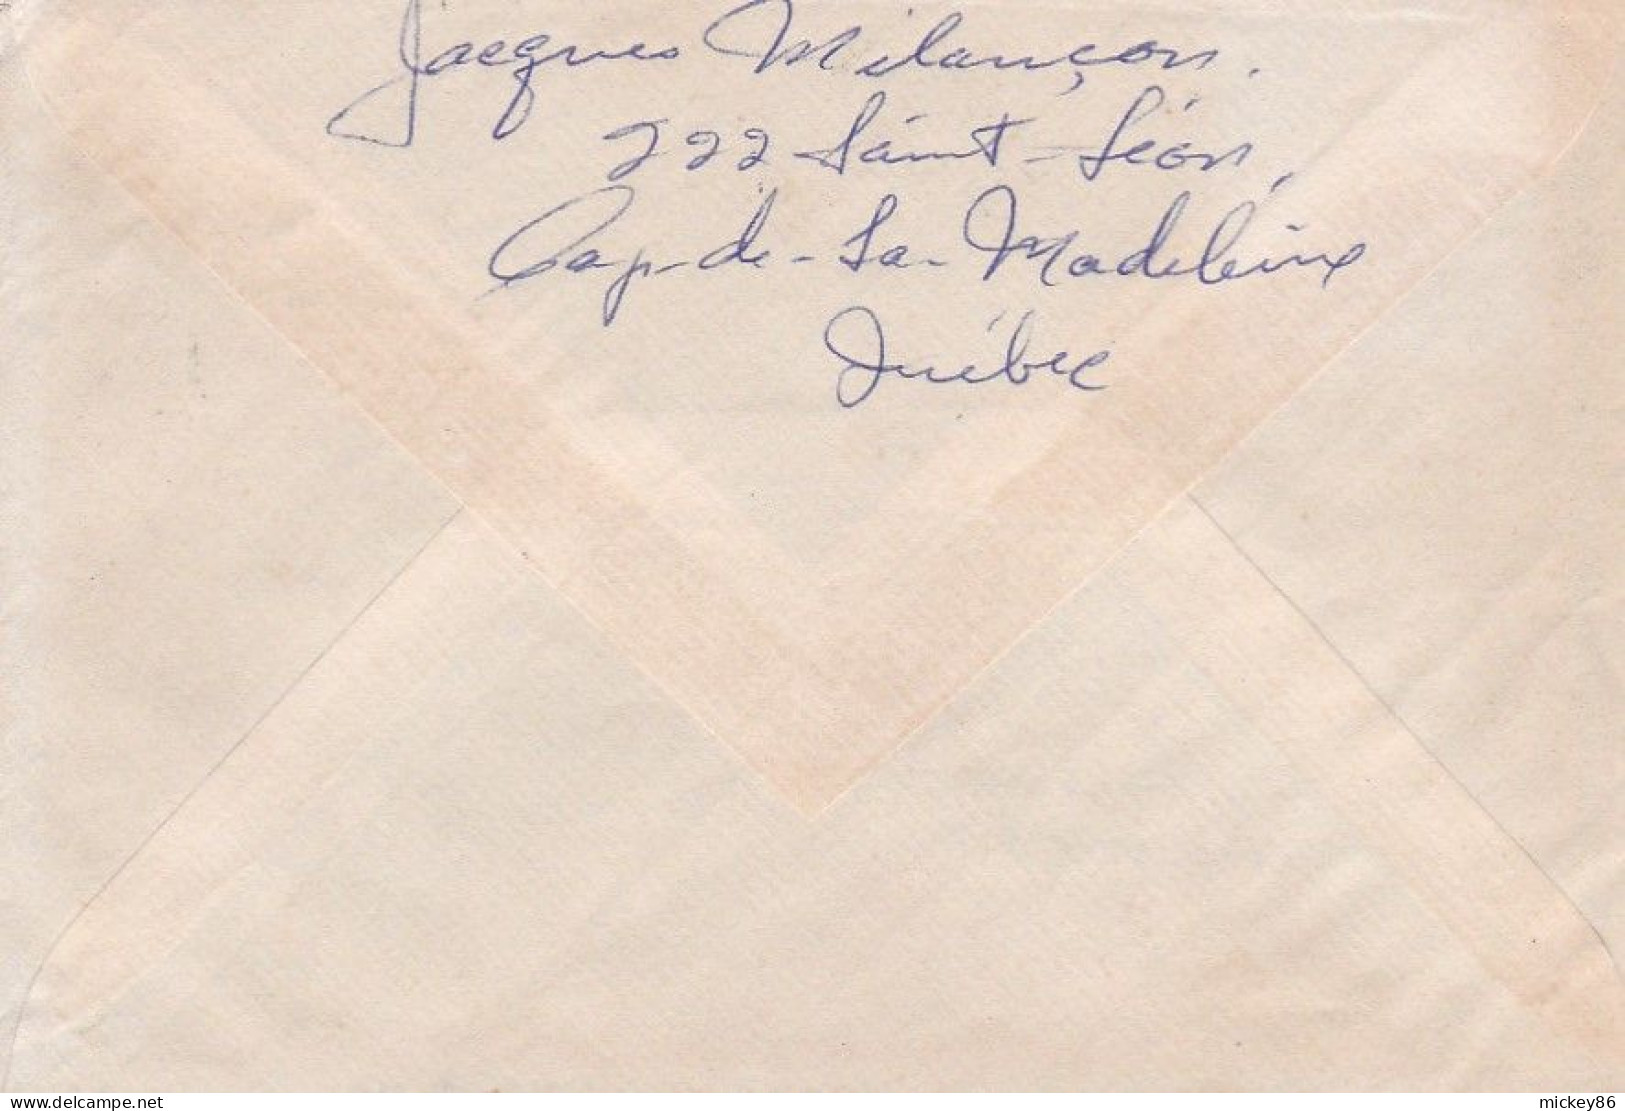 Jacques Milançon.
222 Saint-Léon,
Cap-de-la-Madeleine
Québec
delcampe.net
mickey86